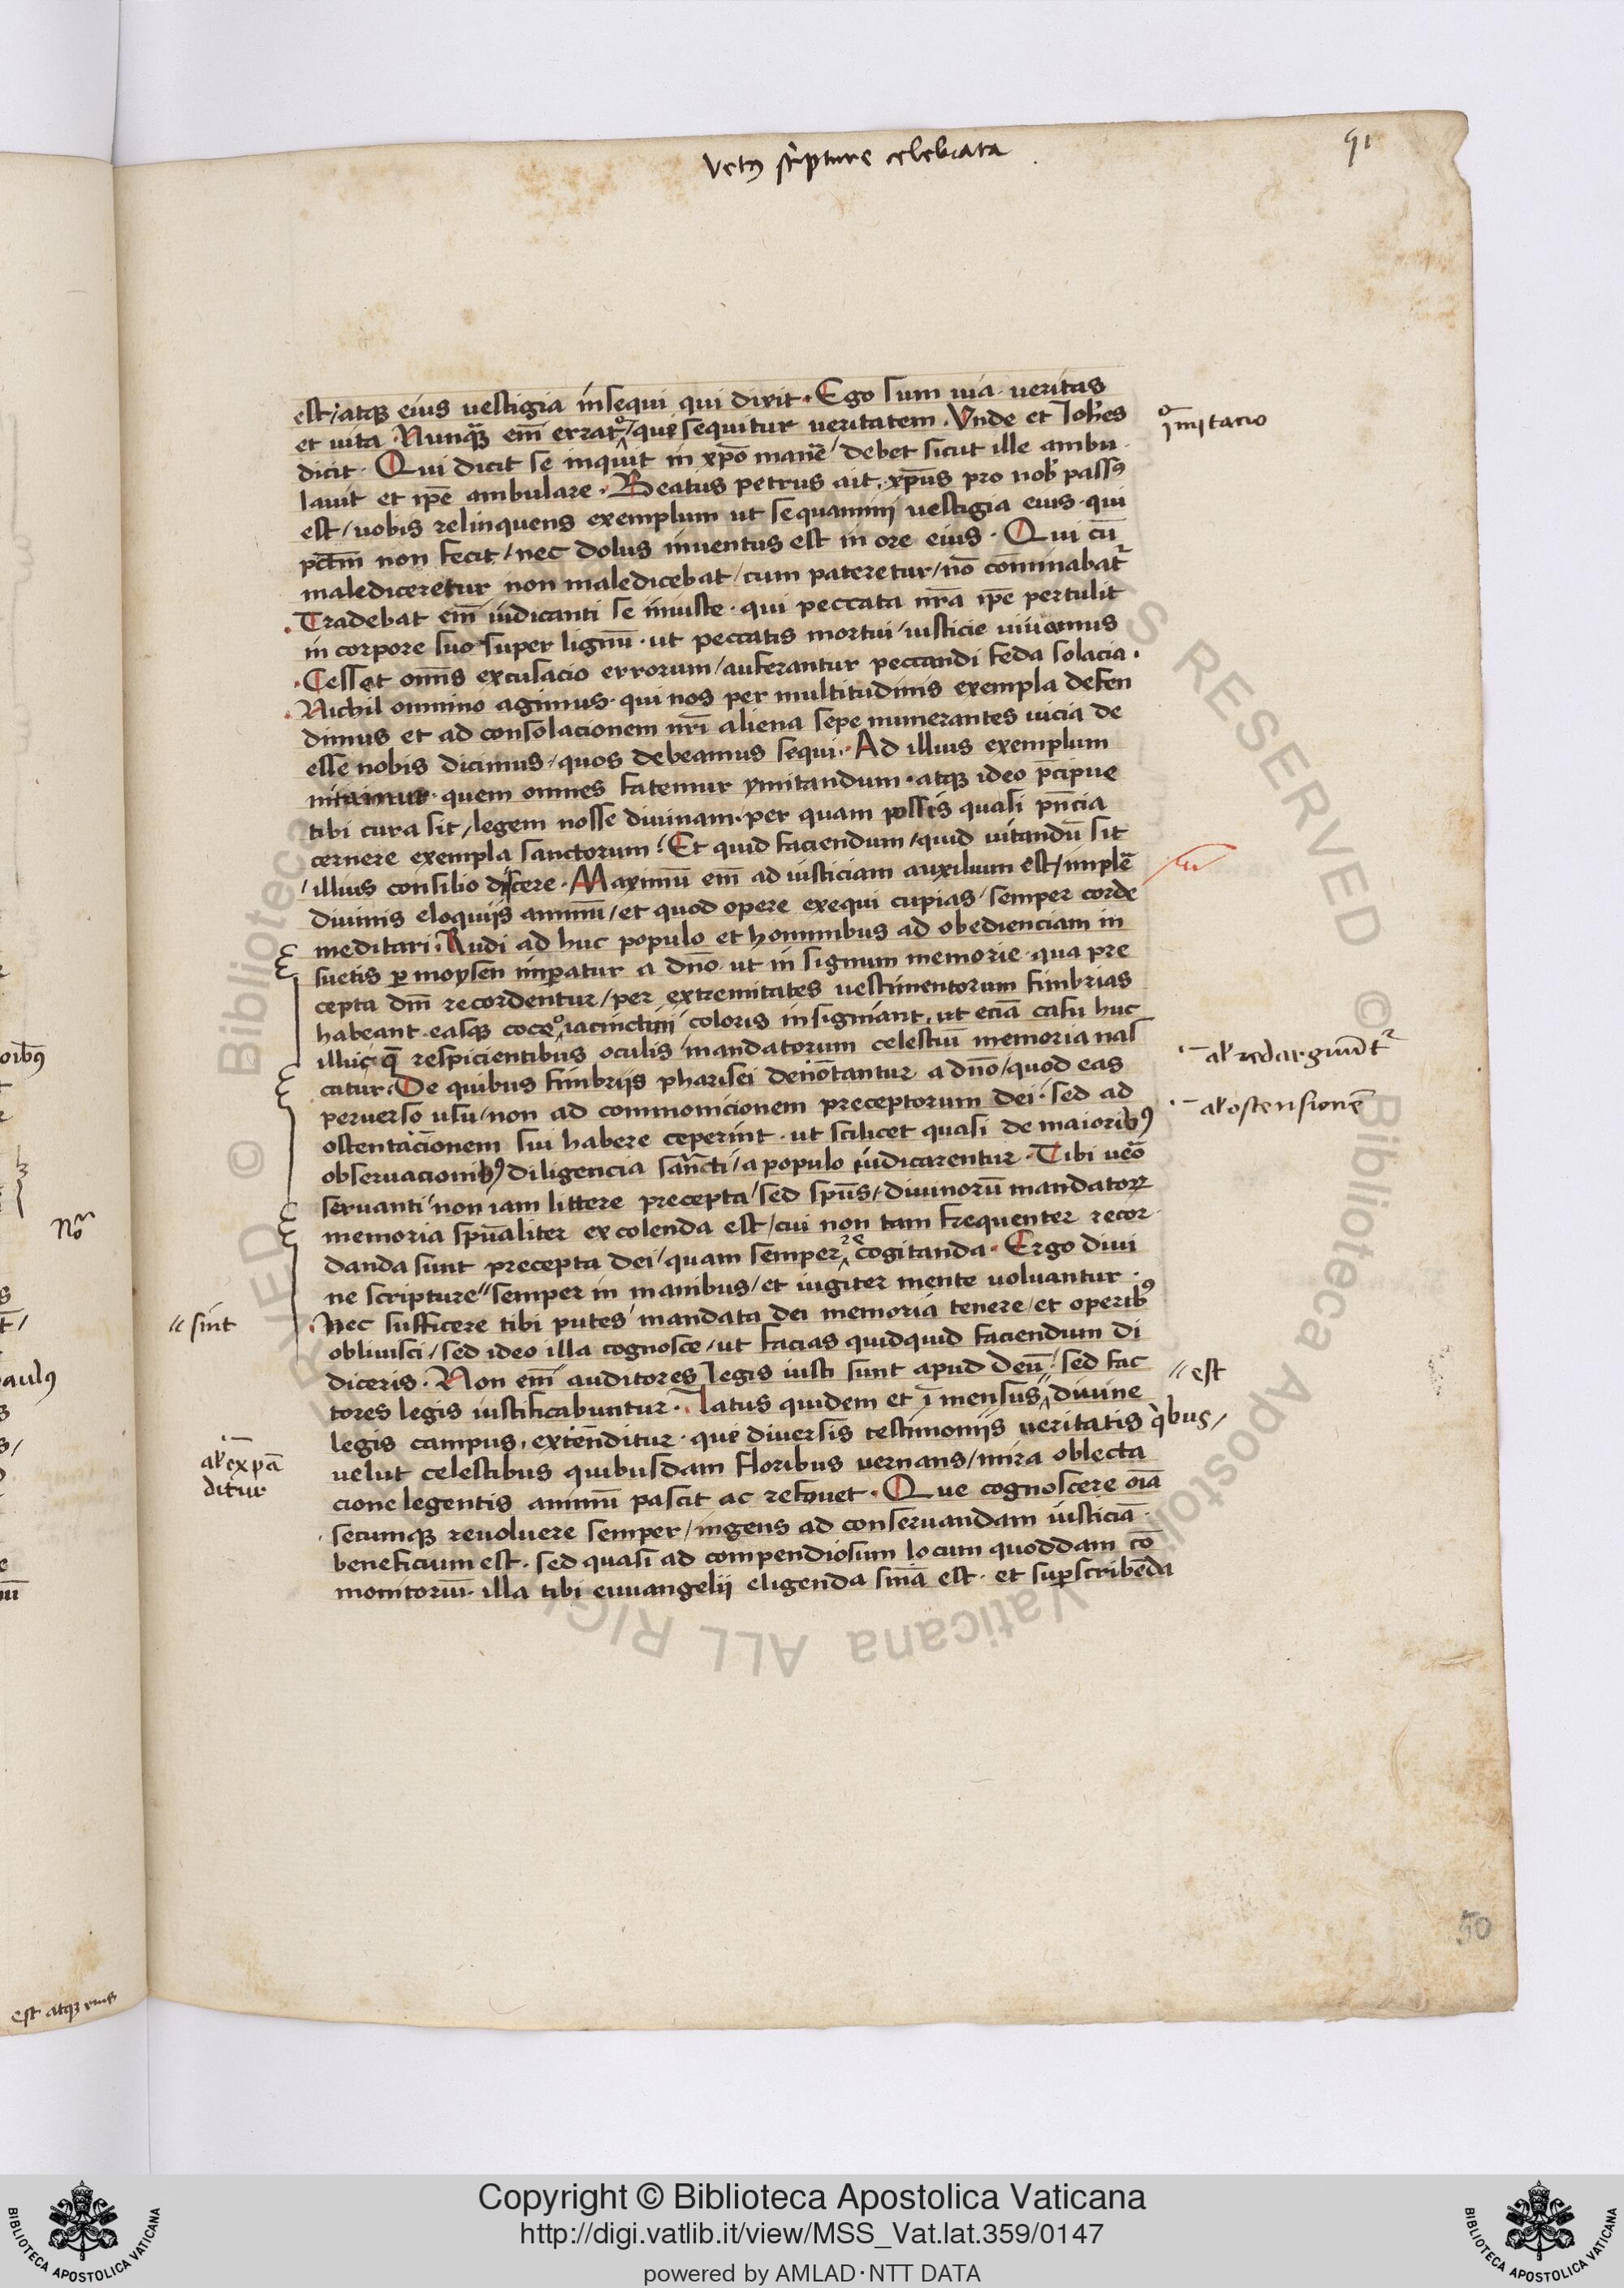 vetꝰ sc̃pture celebrata
91
est / atqꝫ eius uestigia insequi qui dixit · Ego sum uia ueritas
et uita · Nunq̃ em̃ errat / qui sequitur ueritatem · Vnde et Ioh̃es
ymitacio
dicit · Qui dicit se inquit in xp̃o manẽ / debet sicut ille ambu
lauit et ip̃e ambulare · Beatus petrus ait · xp̃us pro nob̃ passꝰ
est / uobis relinquens exemplum ut sequamini uestigia eius · qui
pctm̃ non fecit / nec dolus inuentus est in ore eius · Qui cũ
malediceretur non maledicebat / cum pateretur / nõ cõminabat᷑
Tradebat em̃ iudicanti se iniuste · qui peccata nr̃a ip̃e pertulit
in corpore suo super lignũ · ut peccatis mortui / iusticie uiuamus
Cesset om̃s excusacio errorum / auferantur peccandi feda solacia ·
Nichil omnino agimus · qui nos per multitudinis exempla defen
dimus et ad consolacionem nr̃i aliena sepe numerantes uicia de
esse nobis dicimus / quos debeamus sequi · Ad illius exemplum
quem omnes fatemur ymitandum · atqꝫ ideo p̃cipue
tibi cura sit / legem nosse diuinam · per quam possis quasi pñcia
cernere exempla sanctorum · Et quid faciendum / quid uitandũ sit
/ illius consilio discere · Maximũ em̃ ad iusticiam auxilium est / implẽ
diuinis eloquijs animũ / et quod opere exequi cupias / semper corde
meditari · Rudi ad huc populo et hominibus ad obedienciam in
suetis ꝑ moysen imꝑatur a dño · ut in signum memorie · qua pre
cepta dm̃ recordentur / per extremitates uestimentorum fimbrias
habeant · easqꝫ coccꝰ iacinctini coloris insigniant · ut eciã casu huc
illucq̃ respicientibus oculis mandatorum celestiũ memoria nas
al̃ redarguũt᷑
catur · De quibus fimbrijs pharisei denõtantur a dño / quod eas
peruerso usu / non ad commonicionem preceptorum dei · sed ad
al̃ ostensionẽ
ostentacionem sui habere ceperint · ut scilicet quasi de maioribꝰ
obseruacionibꝰ diligencia sancti / a populo iudicarentur · Tibi uẽo
seruanti non iam littere precepta / sed sp̃us / diuinorũ mandatoꝝ
memoria sp̃ualiter excolenda est / cui non tam frequenter recor
danda sunt precepta dei / quam semper cogitanda · Ergo diui
ne scripture semper in manibus / et iugiter mente uoluantur ·
sint
Nec sufficere tibi putes mandata dei memoria tenere / et operibꝰ
obliuisci / sed ideo illa cognosce / ut facias quidquid faciendum di
diceris · Non em̃ auditores legis iusti sunt apud deũ / sed fac
est
tores legis iustificabuntur · Latus quidem et ĩmensus diuine
legis campus · extenditur · qui diuersis testimonijs ueritatis q̃bus /
al̃ expã
ditur
uelut celestibus quibusdam floribus uernans / mira oblecta
cione legentis animũ pascit ac refouet · Que cognoscere oĩa
secumqꝫ reuoluere semper / ingens ad conseruandam iusticiã ·
beneficium est · sed quasi ad compendiosum locum quoddam cõ
monitoriũ · illa tibi euuangelii eligenda sm̃a est · et suꝑscribẽda
50
est atqꝫ eius
Copyright © Biblioteca Apostolica Vaticana
http://digi.vatlib.it/view/MSS_Vat.lat.359/0147
powered by AMLAD·NTT DATA
BIBLIOTECA APOSTOLICA VATICANA
BIBLIOTECA APOSTOLICA VATICANA